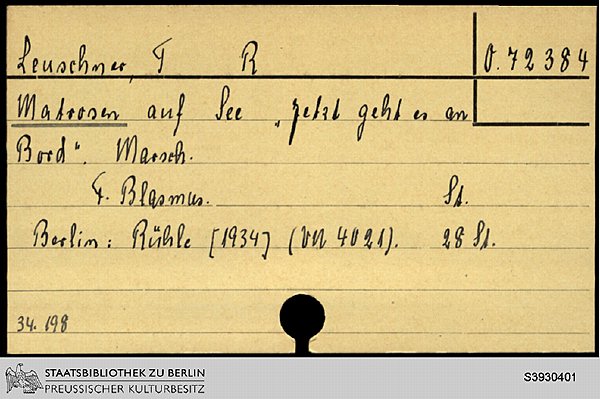 Leuschner, F R O. 72384
Matrosen auf See „Jetzt geht es an
Bord“. Marsch.
F. Blasmus. St.
Berlin: Rühle [1934] (VN 4021). 28 St.
34. 198
STAATSBIBLIOTHEK ZU BERLIN
PREUSSISCHER KULTURBESITZ
S3930401